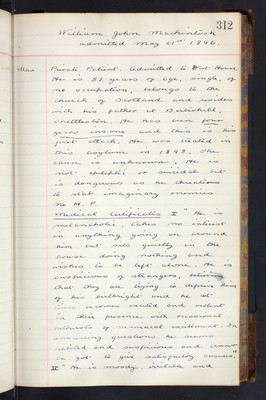 312
William John Mackintosh
admitted May 21st 1896.
Private Patient. Admitted to West House
He is 31 years of age, single, of
no occupation, belongs to the
Church of Scotland and resides
with his father at
Shettleston. He has been four
years insane and this is his
first attack. He was treated in
this asylum in 1893. The
cause is unknown. He is
not epileptic or suicidal but
is dangerous as he threatens
to stab imaginary enemies
No H. P.
Medical Certificates I "He is
melancholic, takes no interest
in anything going on around
him but sits quietly in the
house doing nothing and
wishes to be left alone. He is
suspicious of strangers, believing
that they are trying to deprive him
of his birthright and he at
times becomes excited and violent
in their presence with occasional
intervals of maniacal excitement. In
answering questions he seems
and suspicious and cannot
be got to give satisfactory answers."
II "He is moody, irritable and